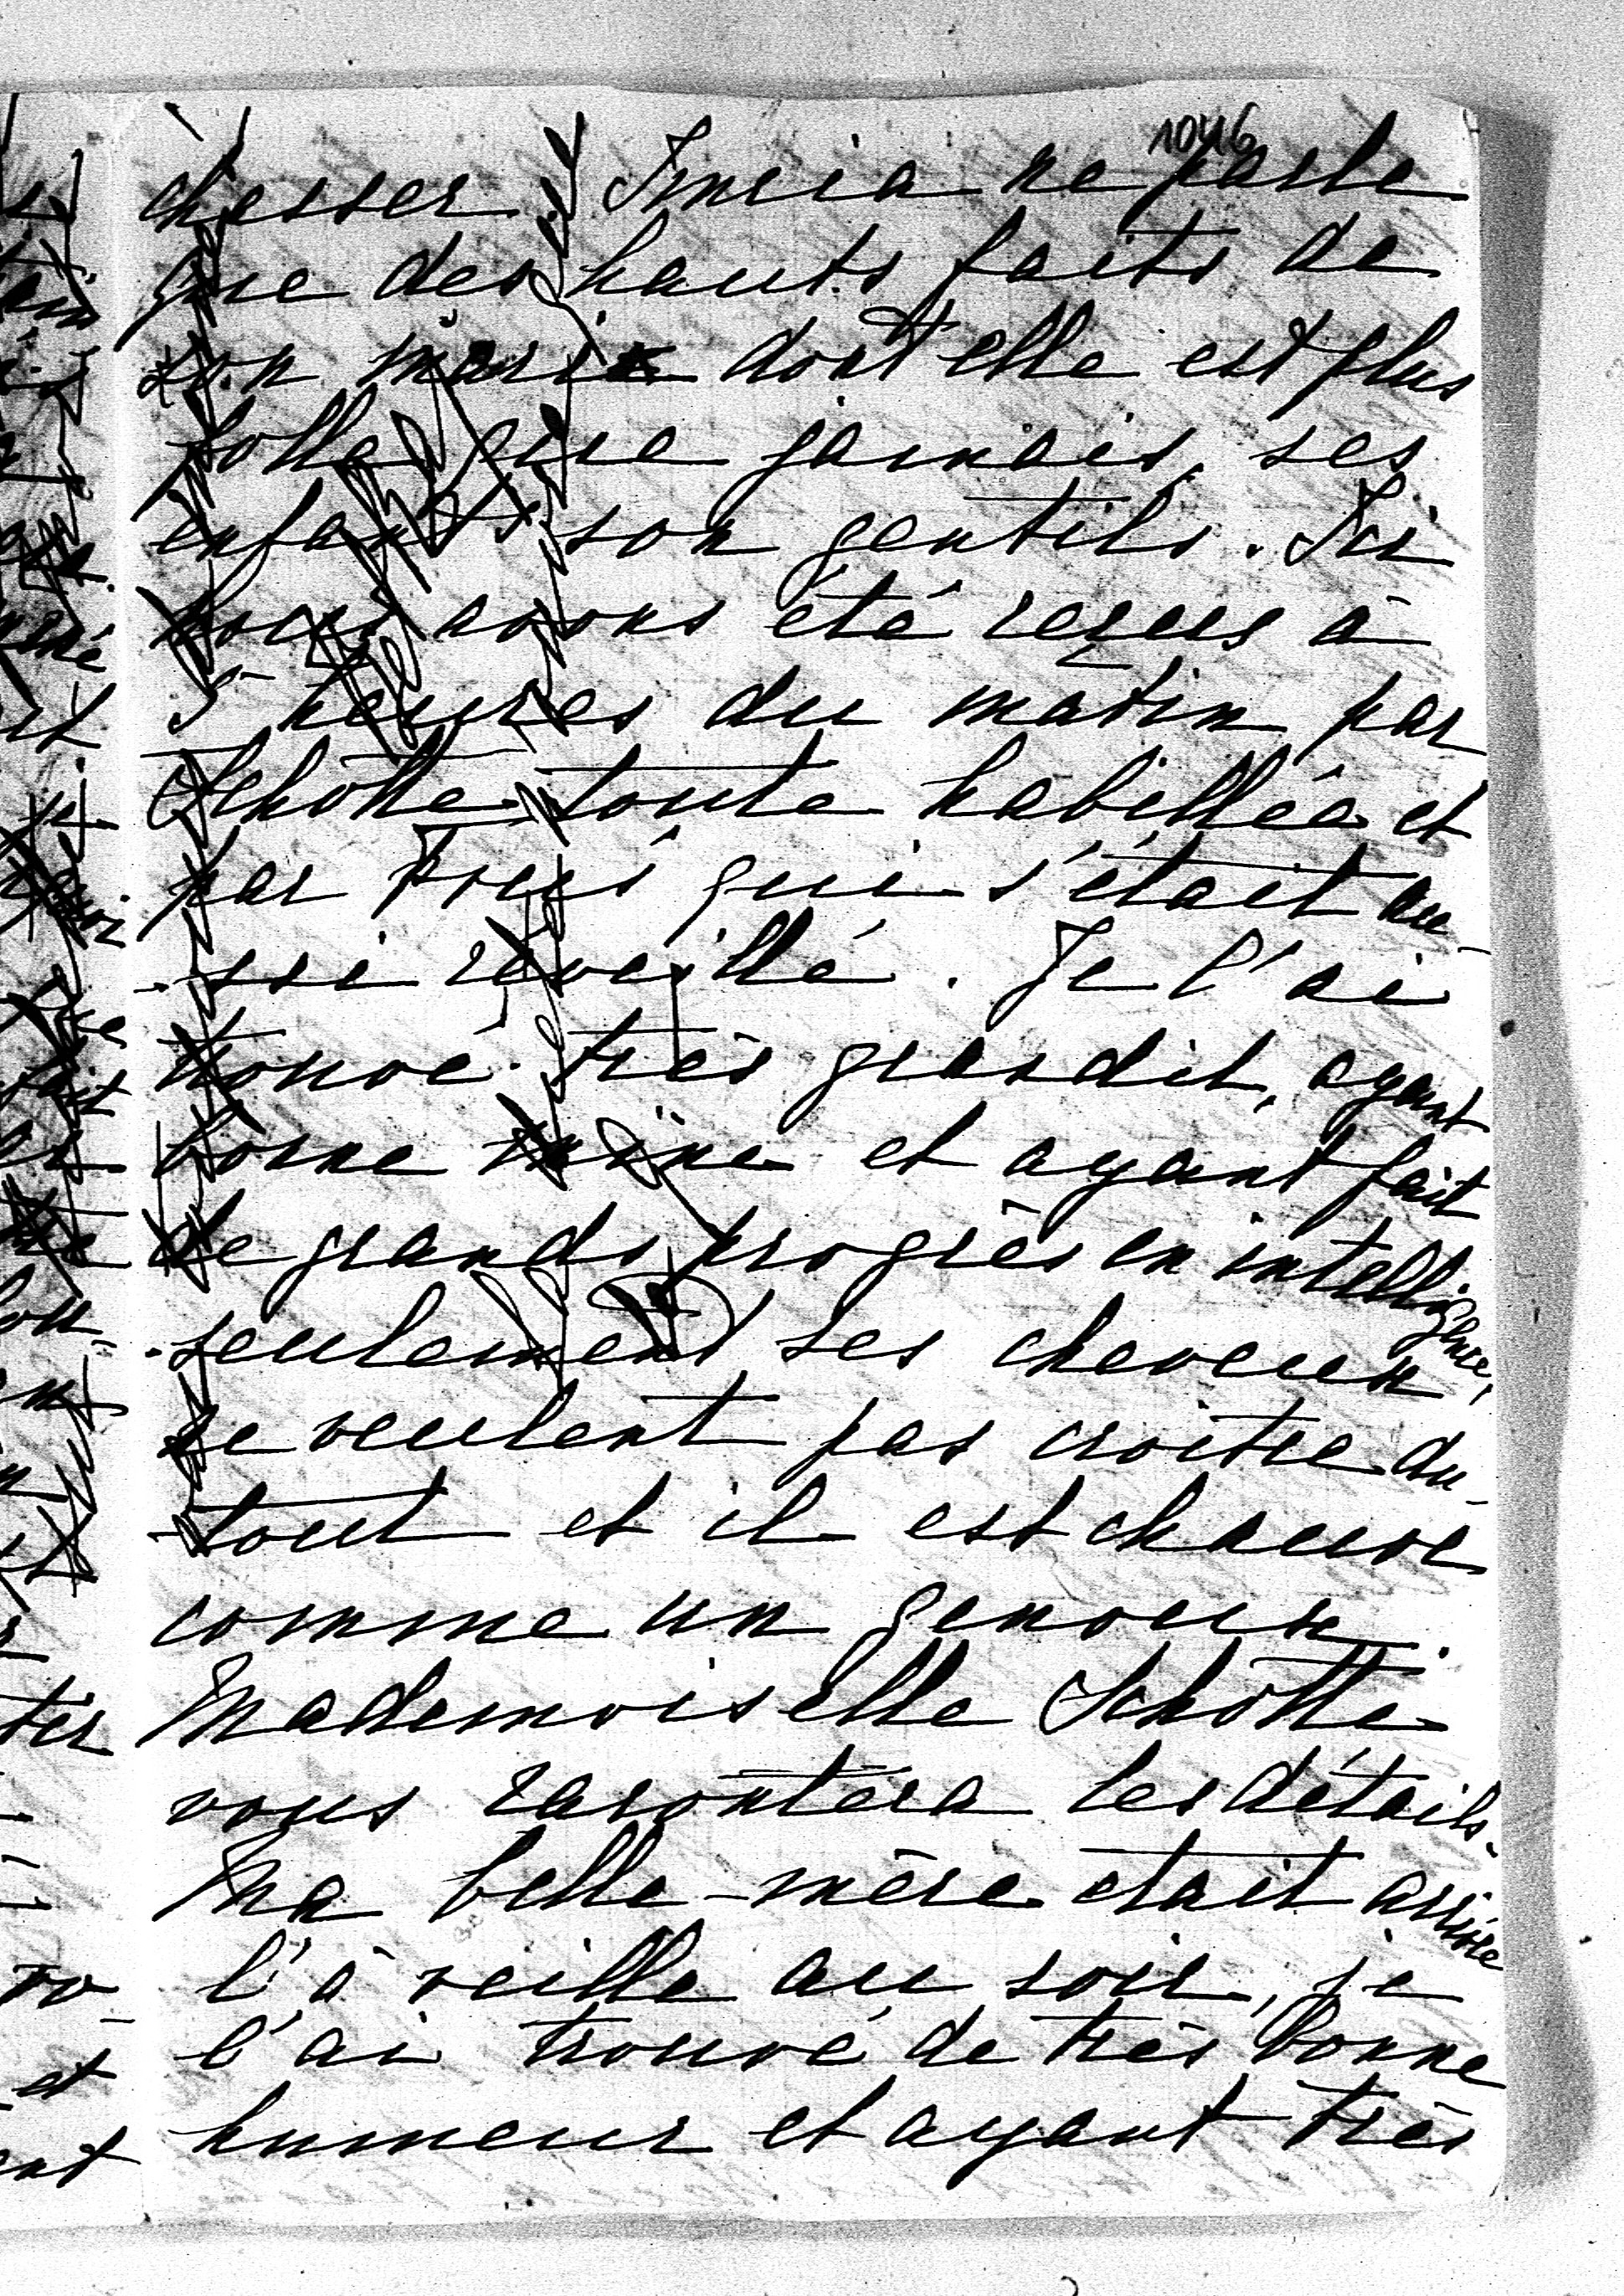 1046
chesser. Imcia ne parle
que des hauts faits de
son mari dont elle est plus
folle que jamais, ses
enfants son gentils. Ici
nous avons été reçus à
5 heures du matin par
Schotte toute habillée et
par qui s'était au-
-ssi réveillé. Je l'ai
trouvé très grandit, ayant
bonne mine et ayant fait
de grands progrès en intelligence,
seulement ses cheveux
ne veulent pas croitre du-
-tout et il est chauve
comme un genoux.
Mademoiselle Schotte
vous racontera les détails.
Ma belle-mère était arrivée
l'à veille au soir, je
l'ai trouvé de très bonne
humeur et ayant très